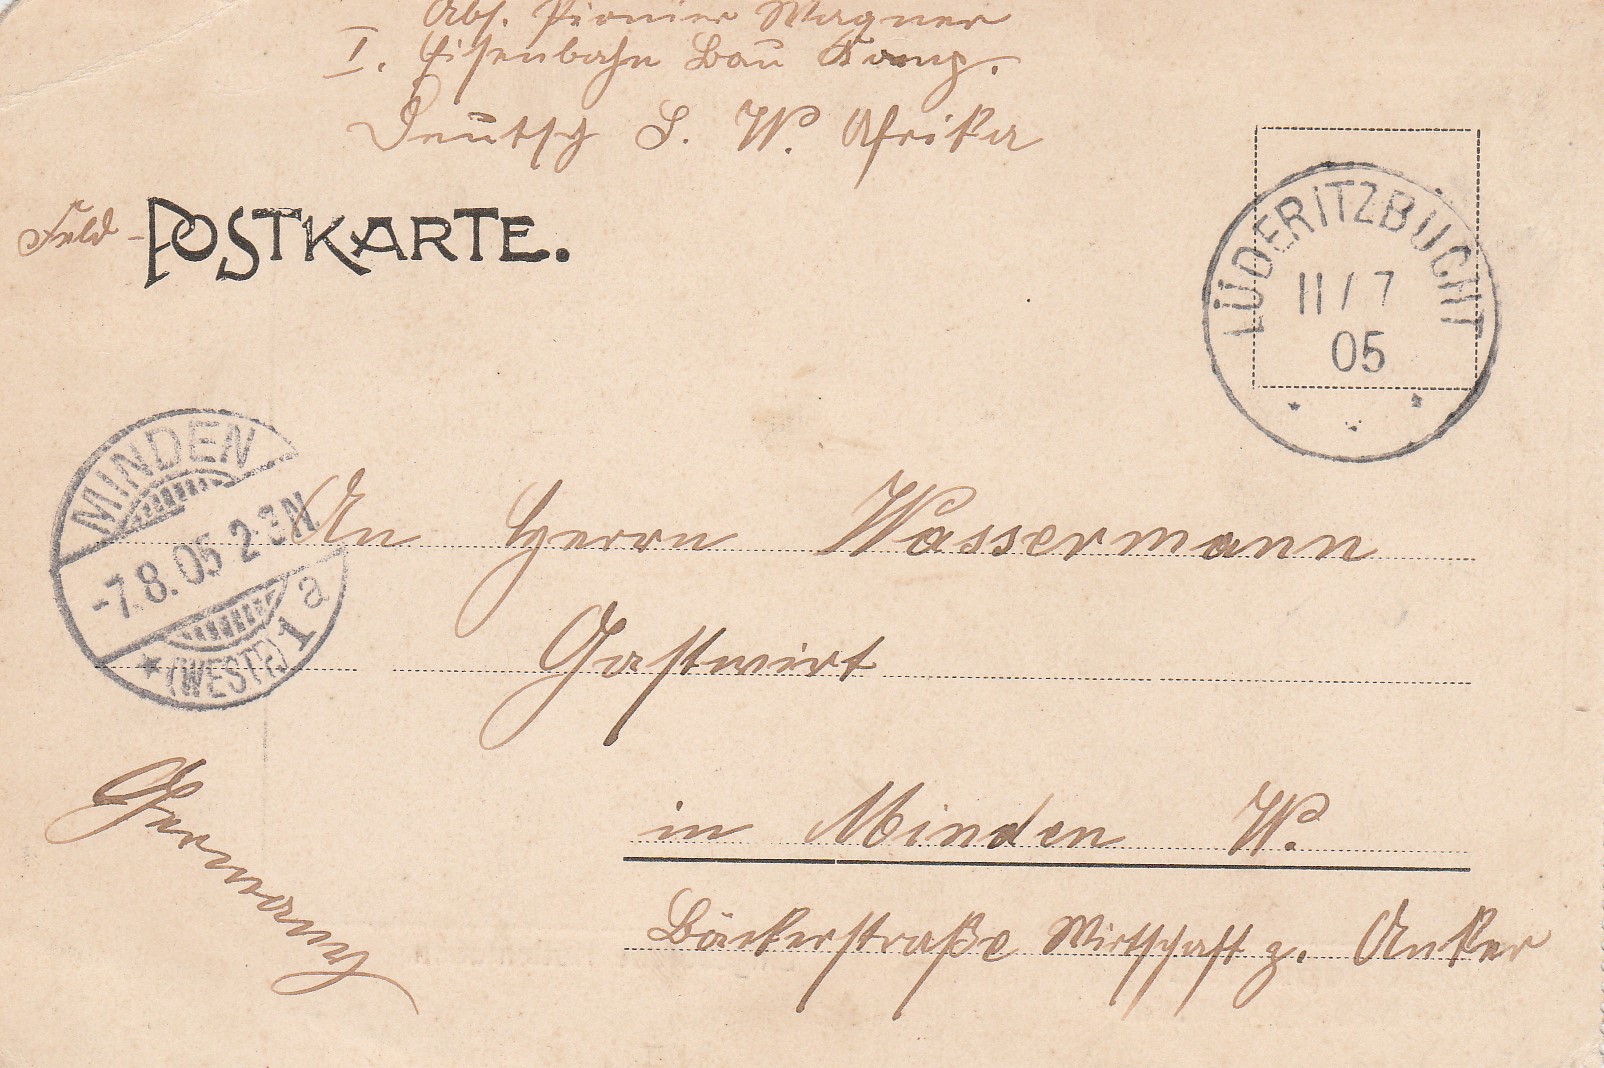 Abs. Pionier Wagner
I. Eisenbahn Bau Komp.
Deutsch S. W. Afrika
Feld - POSTKARTE.
LÜDERITZBUCHT
11/7
05
MINDEN
-7.8.05 2-3N
* (WESTF.) 1 a
An Herrn Wassermann
Gastwirt
in Minden W.
Bäckerstraße Wirtschaft z. Anker
Germany